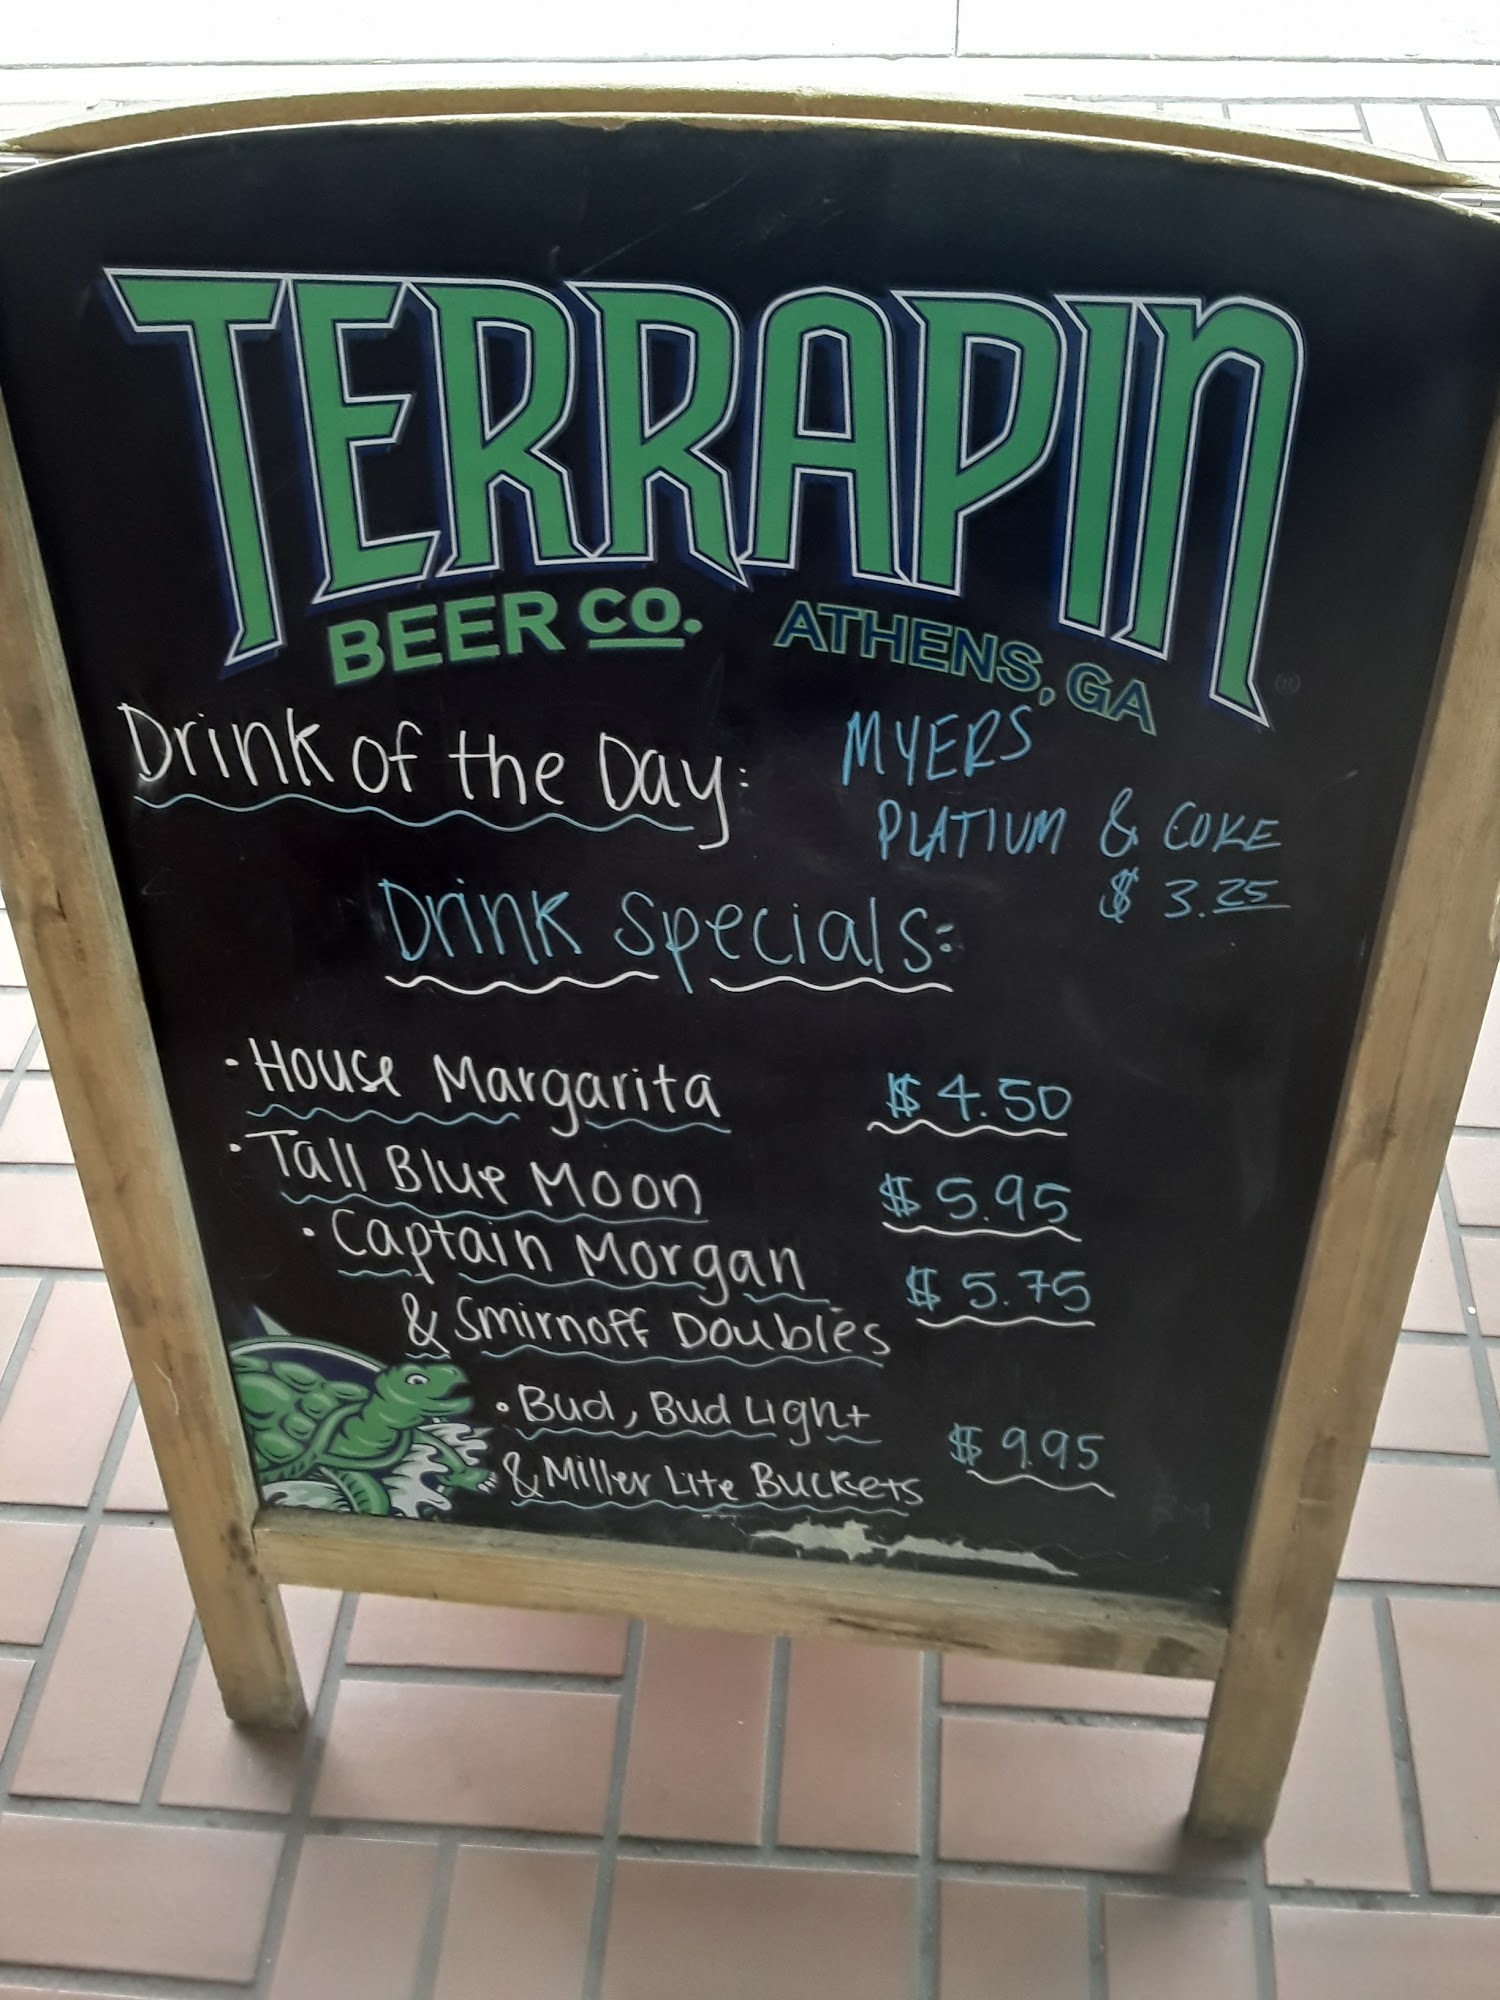 TERRAPIN
BEER CO. ATHENS, GA
Drink of the Day: MYERS
PLATIUM & COKE
$ 3.25
Drink Specials:
• House Margarita $ 4.50
• Tall Blue Moon $ 5.95
• Captain Morgan $ 5.75
& Smirnoff Doubles
• Bud, Bud Light $ 9.95
& Miller Lite Buckets